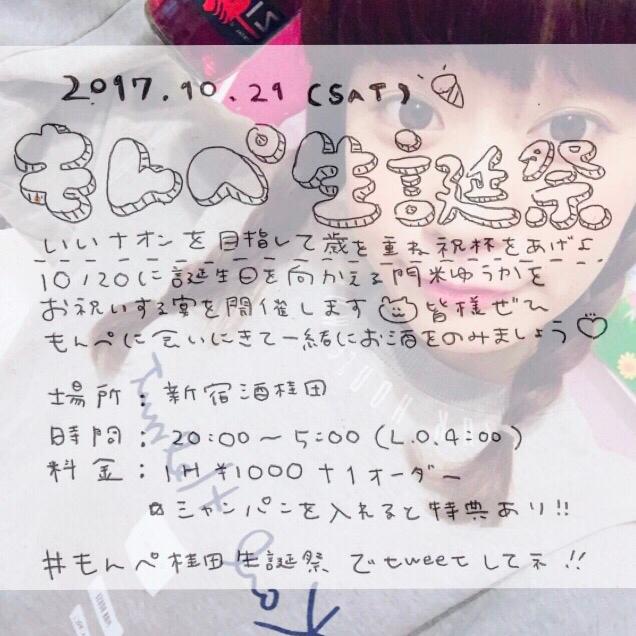 2017.10.21 (SAT)
もんぺ生誕祭
いいナオンを目指して歳を重ね祝杯をあげよ
10/20に誕生日を向かえる門米ゆうかを
お祝いする宴を開催します 皆様ぜひ
もんぺに会いにきて一緒にお酒をのみましょう♡
場所：新宿酒桂田
時間：20:00〜5:00 (L.O.4:00)
料金：1H ¥1000+1オーダー
✩シャンパンを入れると特典あり!!
#もんぺ桂田生誕祭 でtweetしてネ!!